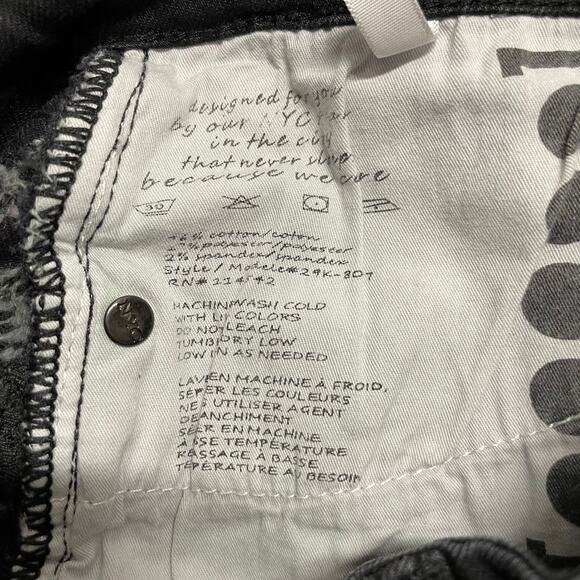 designed for you
by our NYC
in the city
that never
because we are
30
cotton/coton
polyester/polyester
2% spandex/spandex
Style / Modele# 29K-807
RN#
MACHINWASH COLD
WITH LI COLORS
DO NOLEACH
TUMBDRY LOW
LOW IN AS NEEDED
LAVEN MACHINE À FROID,
SÉPER LES COULEURS
NE UTILISER AGENT
DEANCHIMENT
SÉER EN MACHINE
À SSE TEMPÉRATURE
RESSAGE À BASSE
TEPÉRATURE AU BESOIN
NYC